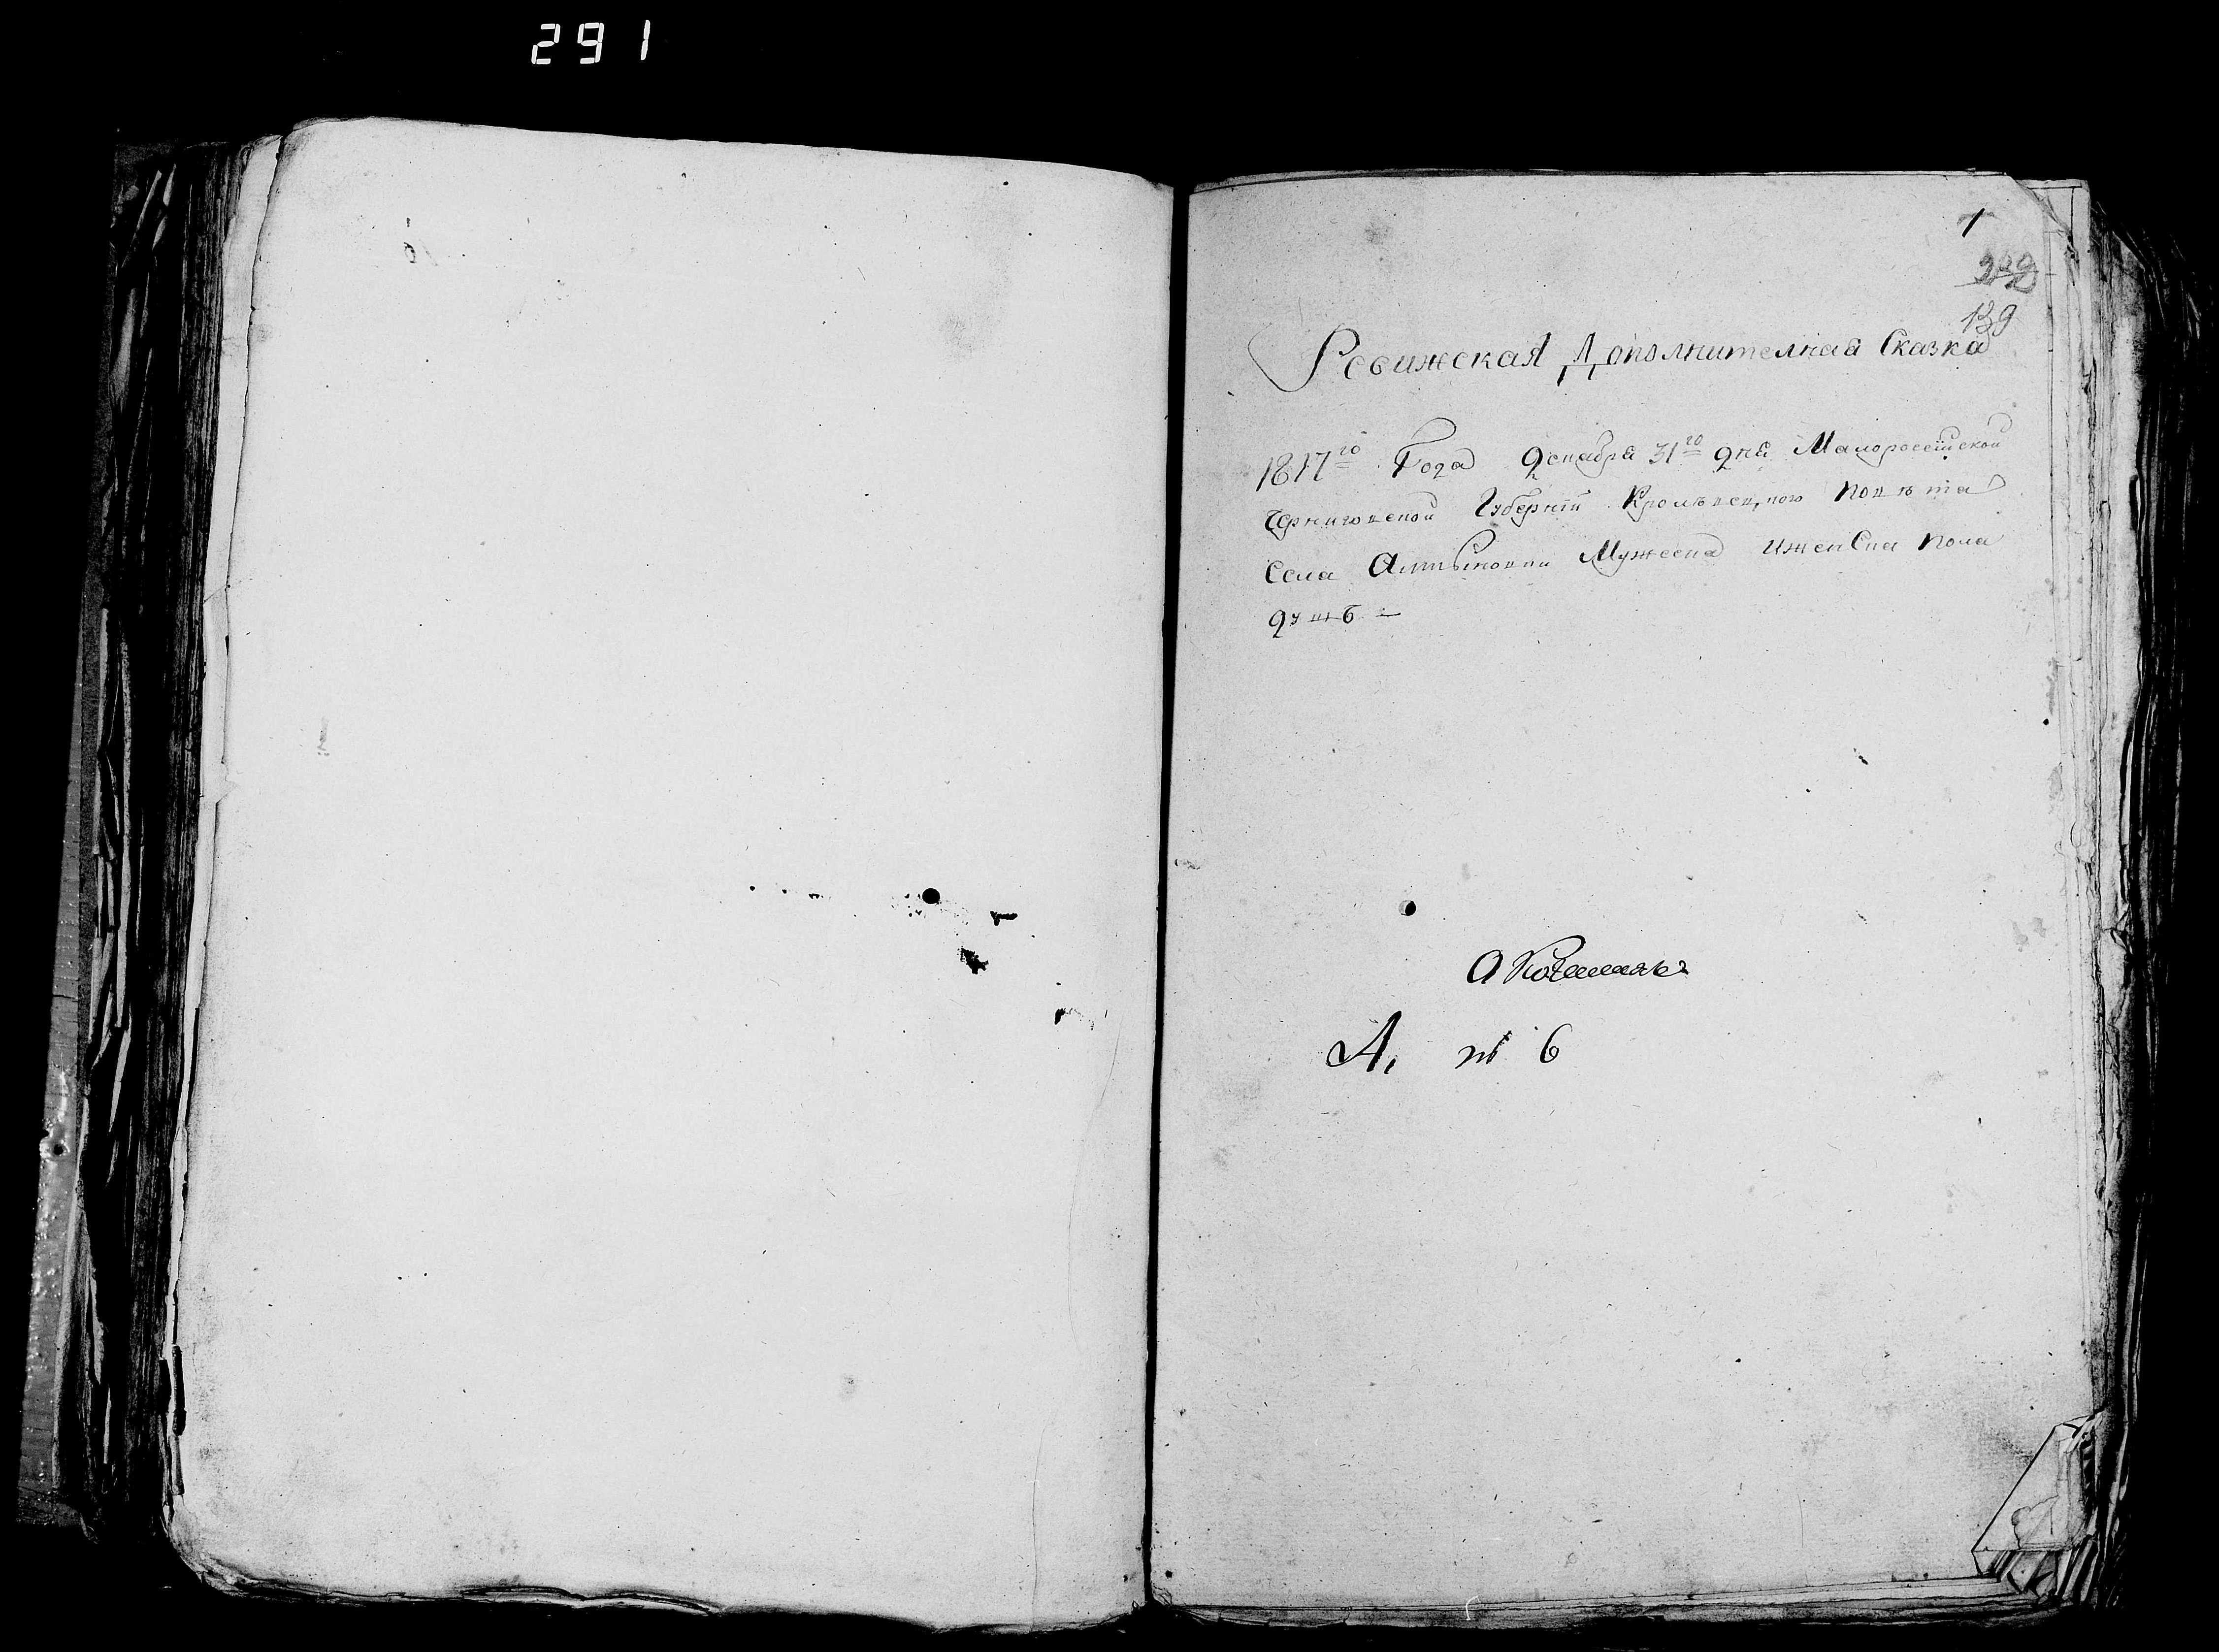 291
1
139
Ревижская Дополнителная Сказка
1817го Года Декабря 31го дня Малороссійской
Черниговской Губерніи Кролевецкого повѣта
Села Алтыновки Мужеска иженска пола
душъ —
О Козакахъ
Л. № 6